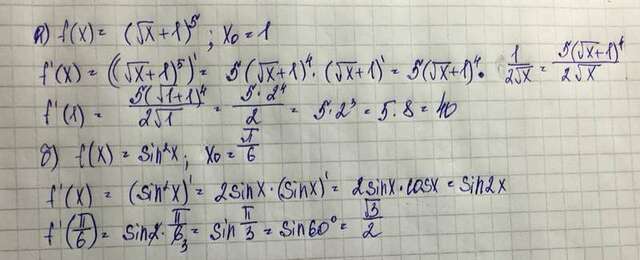 а) f(x) = (√x+1)⁵ ; x₀ = 1
f'(x) = ((√x+1)⁵)' = 5(√x+1)⁴ · (√x+1)' = 5(√x+1)⁴ · 1/(2√x) = 5(√x+1)⁴/(2√x)
f'(1) = 5(√1+1)⁴/(2√1) = 5·2⁴/2 = 5·2³ = 5·8 = 40
б) f(x) = sin²x ; x₀ = π/6
f'(x) = (sin²x)' = 2sinx·(sinx)' = 2sinx·cosx = sin2x
f'(π/6) = sin2·π/6₃ = sin π/3 = sin60° = √3/2